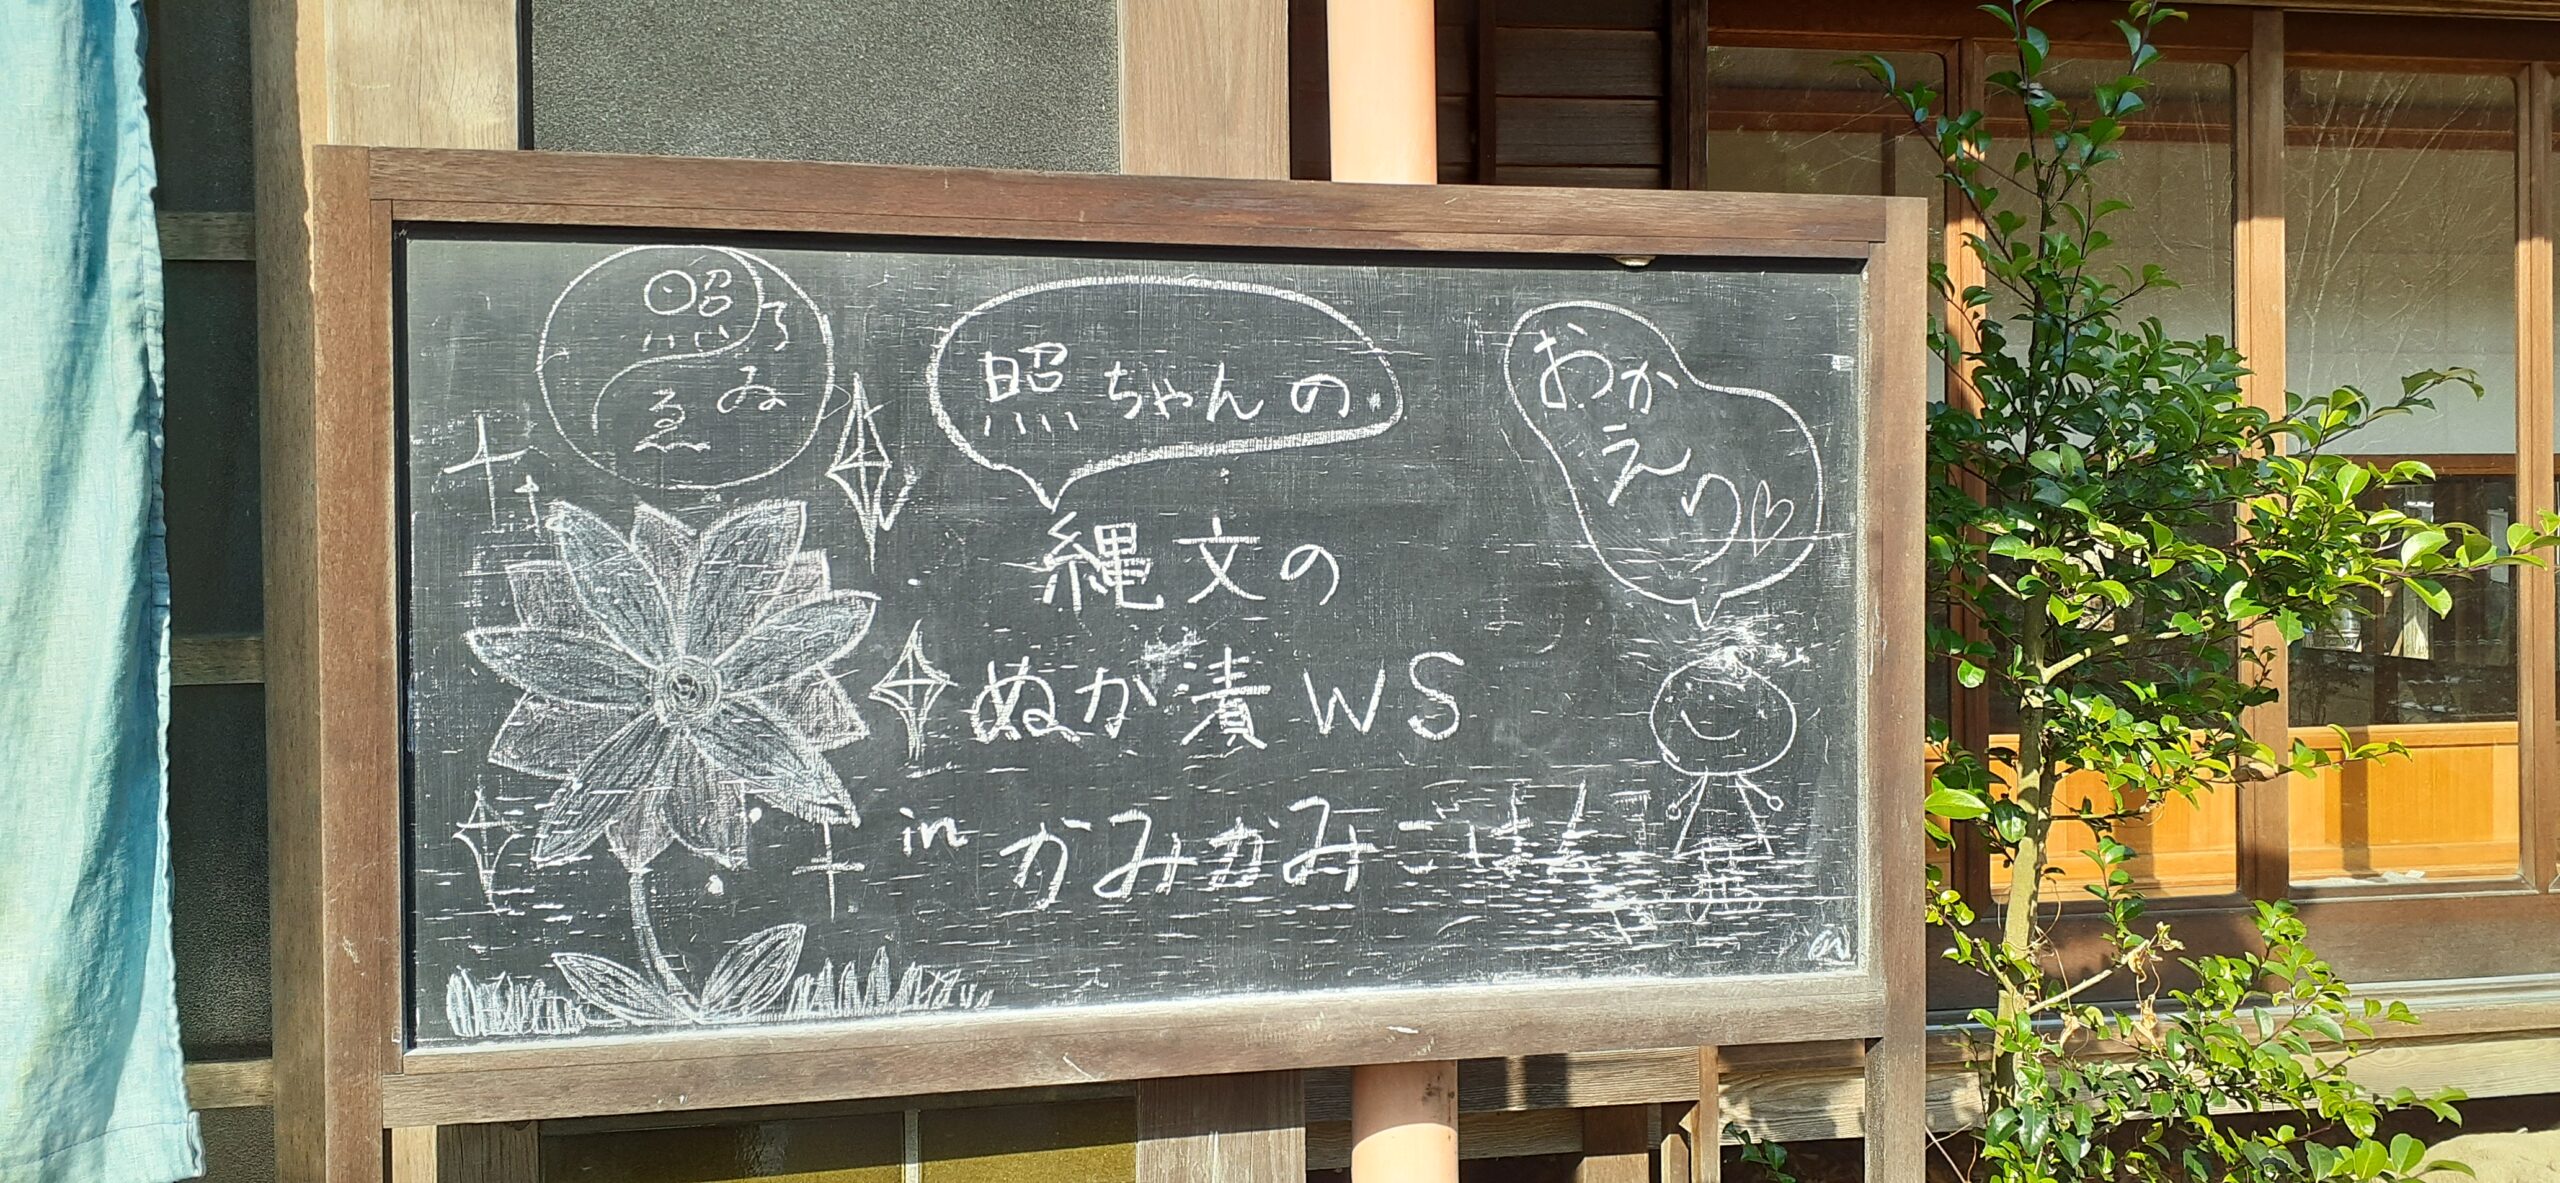 照
ゐ
ゑ
照ちゃんの
おか
えり
縄文の
ぬか漬WS
in かみかみごはん